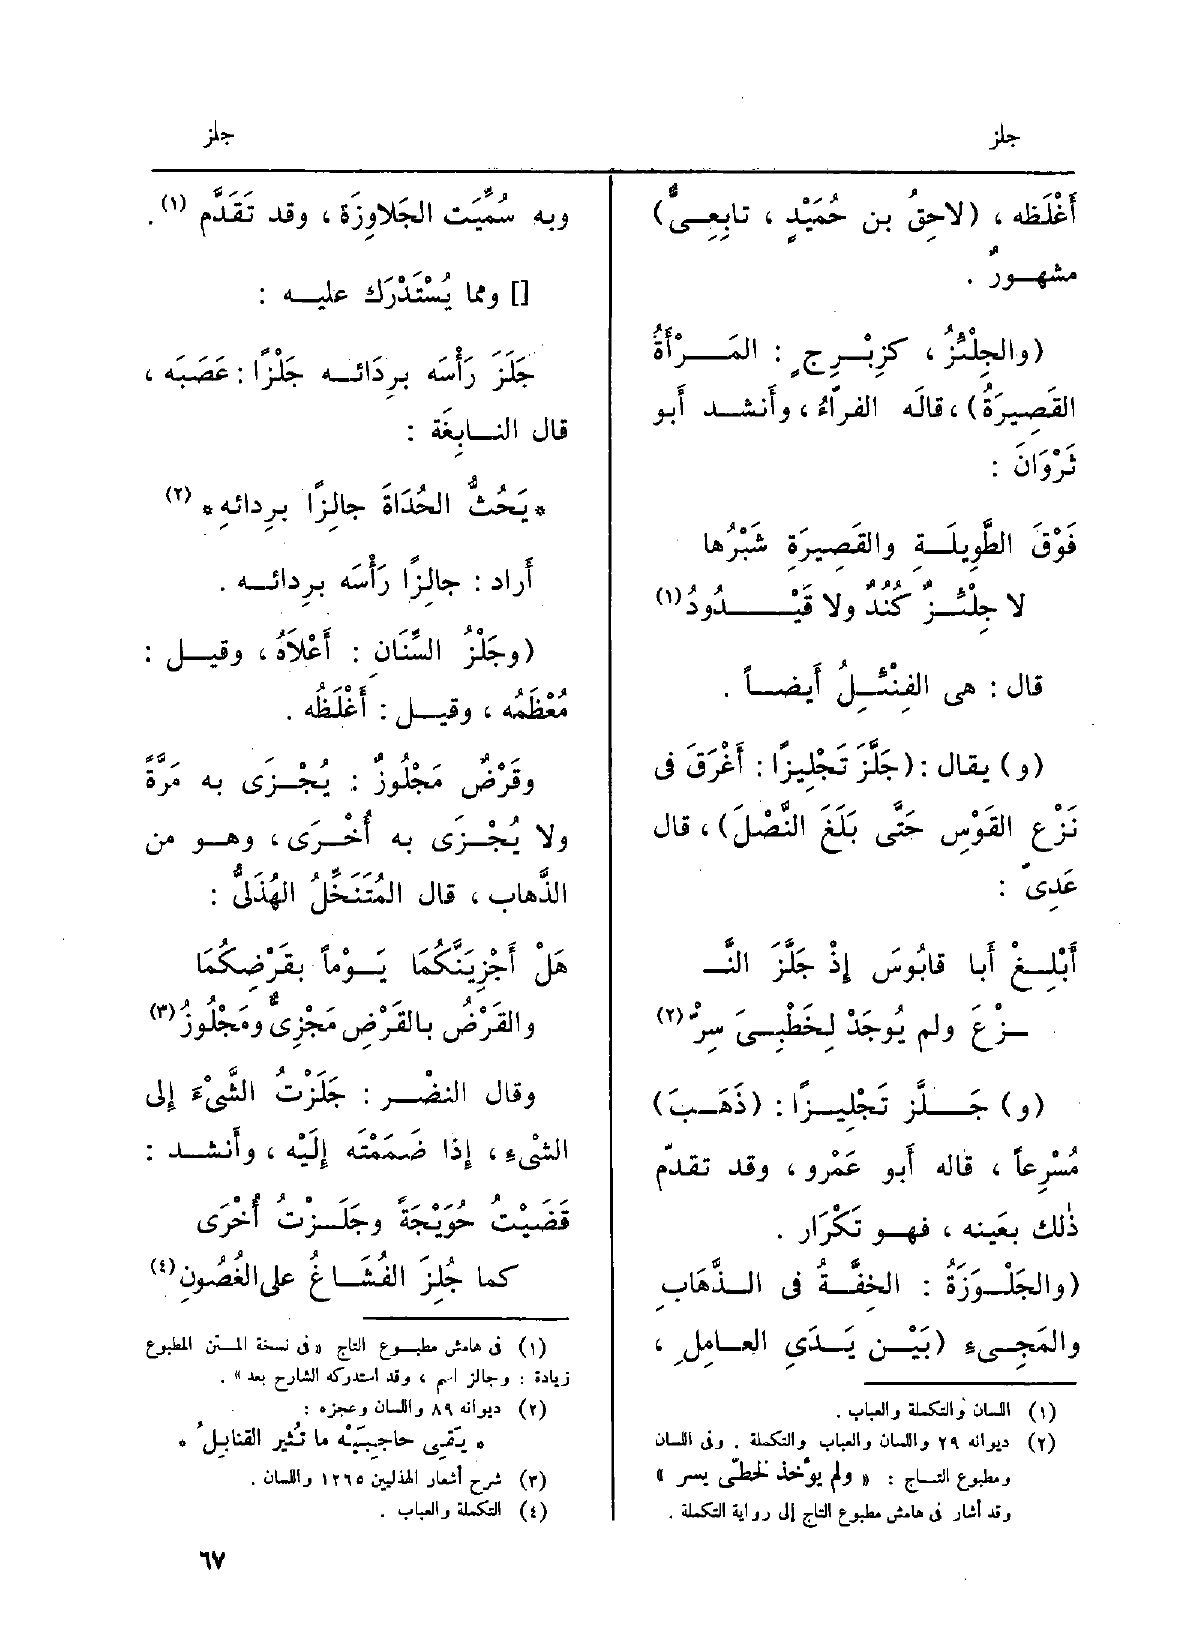 جلز
جلز
أَغْلَظه ، (لاحِقُ بن حُمَيْدٍ ، تابِعِـىٌّ)
مشهـورٌ .
(والجِلْئِزُ ، كزِبْـرِجٍ : المَـــرْأَةُ
القَصِيرَةُ) ، قالَه الفرّاءُ ، وأَنشـد أَبو
ثَرْوَانَ :
فَوْقَ الطَّوِيلَـةِ والقَصِيرَةِ شَبْرُها
لا جِلْئِـزٌ كُنُدٌ ولا قَيْـــــدُودُ (١)
قال : هى الفِنْئِـلُ أَيضـاً .
(و) يقال : (جَلَّزَ تَجْلِيزًا : أَغْرَقَ فى
نَزْعِ القَوْسِ حَتَّى بَلَغَ النَّصْلَ) ، قال
عَدِىّ :
أَبْلِـغْ أَبا قابُوسَ إِذْ جَلَّزَ النَّــ
ــزْعَ ولم يُوجَدْ لِخَطْبِـىَ سِرْ (٢)
(و) جَـــلَّز تَجْلِيـزًا : (ذَهَـبَ)
مُسْرِعاً ، قاله أَبو عَمْرٍو ، وقد تقدّم
ذٰلك بعَينه ، فهـو تَكْرَار .
(والجَلْـوَزَةُ : الخِفَّـةُ فى الـذَّهَابِ
والمَجِـىءِ (بَيْـنَ يَـدَىِ العـامِلِ ،
(١) اللسان والتكملة والعباب .
(٢) ديوانه ٢٩ واللسان والعباب والتكملة . وفى اللسان
ومطبوع التـاج : « ولم يؤخذ لخطّى يسر »
وقد أشار فى هامش مطبوع التاج إلى رواية التكملة .
وبه سُمِّيَت الجَلاوِزَة ، وقد تَقَدَّم (١) .
[] ومما يُسْتَدْرَك عليـه :
جَلَزَ رَأْسَه بردَائـه جَلْزًا : عَصَبَه ،
قال النـابِغَة :
* يَحُثُّ الحُدَاةَ جالِزًا بِرِدائهِ * (٢)
أَراد : جالِزًا رَأْسَه بردائـه .
(وجَلْزُ السِّنَانِ : أَعْلاَهُ ، وقيـل :
مُعْظَمُه ، وقيـل : أَغْلَظُه .
وقَرْضٌ مَجْلُوزٌ : يُجْـزَى به مَرَّةً
ولا يُجْـزَى به أُخْـرَى ، وهـو من
الذَّهاب ، قال المُتَنَخِّلُ الهُذَلىُّ :
هَلْ أَجْزِيَنَّكُمَا يَـوْماً بقَرْضِكُمَا
والقَرْضُ بالقَرْضِ مَجْزِىٌّ ومَجْلُوزُ (٣)
وقال النضْـر : جَلَزْتُ الشَّىْءَ إِلى
الشْىءِ ، إِذا ضَمَمْتَه إِلَيْه ، وأَنشـد :
قَضَيْتُ حُوَيْجَةً وجَلَـزْتُ أُخْرَى
كما جُلِزَ الفُشَـاغُ على الغُصُونِ (٤)
(١) فى هامش مطبـوع التاج « فى نسخة المـتن المطبوع
زيادة : وجالز اسم ، وقد استدركه الشارح بعد » .
(٢) ديوانه ٨٩ واللسان وعجزه :
* يَقِى حاجِبَيْه ما تُثير القنابلُ *
(٣) شرح أشعار الهذليين ١٢٦٥ واللسان .
(٤) التكملة والعباب .
٦٧